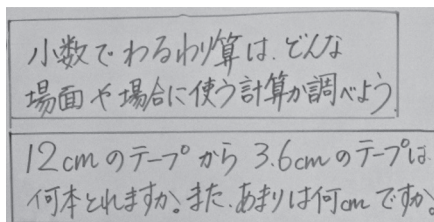 小数でわるわり算は、どんな
場面や場合に使う計算か調べよう。
12cmのテープから3.6cmのテープは
何本とれますか。また、あまりは何cmですか。